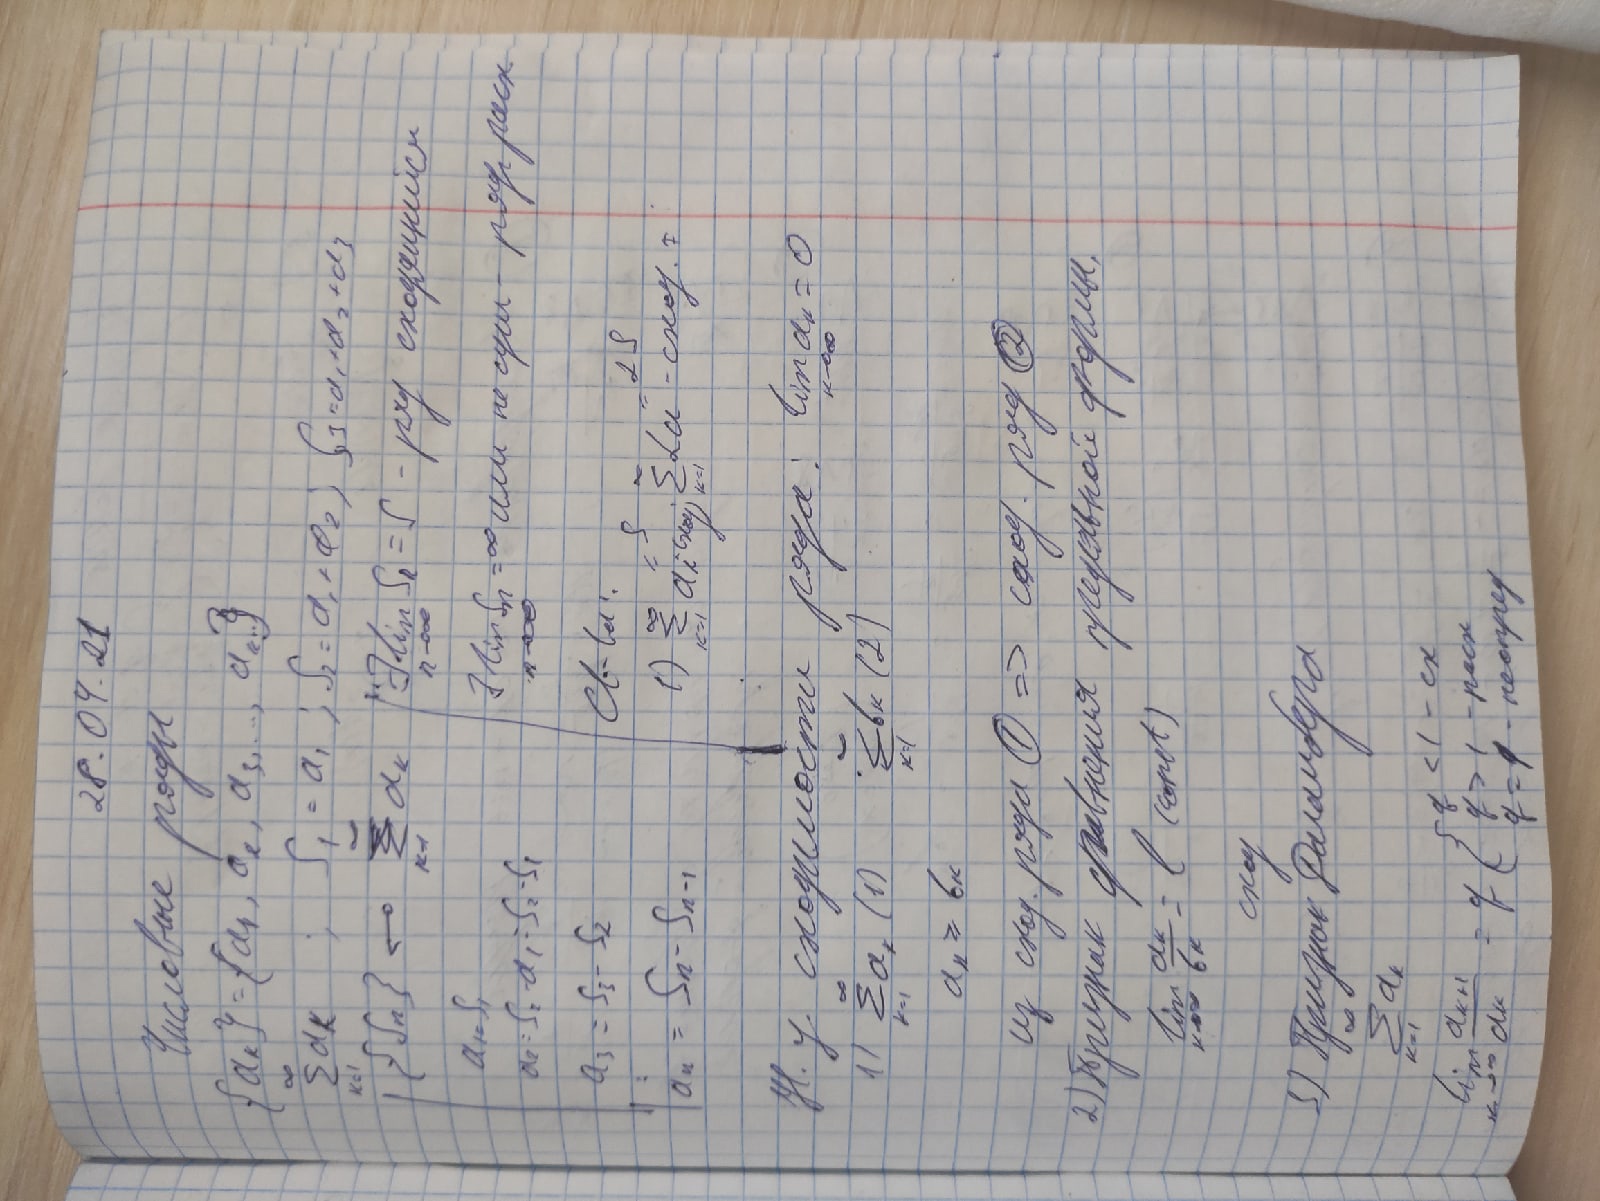 28.04.21
Числовые ряды
{aₖ} = {a₁, a₂, a₃, ..., aₖ...}
∑ₖ₌₁^∞ aₖ ; S₁ = a₁ ; S₂ = a₁ + a₂ ; S₃ = a₁ + a₂ + a₃
{Sₙ} ↔ ∑ₖ₌₁^∞ aₖ
a₁ = S₁
a₂ = S₂ - a₁ = S₂ - S₁
a₃ = S₃ - S₂
⋮
aₙ = Sₙ - Sₙ₋₁
∃ lim Sₙ = S - ряд сходящийся
n→∞
∃ lim Sₙ = ∞ или не сущ - ряд расх.
n→∞
Св-ва:
1) ∑ₖ₌₁^∞ aₖ = S - сход, ∑ₖ₌₁^∞ αa = αS - сход. =
Н. у. сходимости ряда: lim aₖ = 0
к→∞
1) ∑ₖ₌₁^∞ aₖ (1) ∑ₖ₌₁^∞ bₖ (2)
aₙ ≥ bₖ
из сход. ряда ① => сход. ряд ②
2) Признак сравнения предельной формы.
lim aₖ/bₖ = l (const)
к→∞
сход
3) Признак Даламбера
∑ₖ₌₁^∞ aₖ
lim aₖ₊₁/aₖ = q { q < 1 - сх
к→∞ q > 1 - расх
q = 1 - неопред